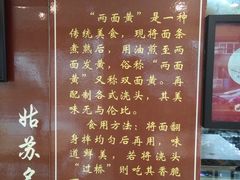 “两面黄”是一种
传统美食，现将面条
煮熟后，用油煎至两
面发黄，俗称“两面
黄”又称双面黄。再
配制各式浇头，其美
味无与伦比。
食用方法：将面翻
身拌均匀后再用，味
道鲜美，若将浇头
“过桥”则吃其香脆
姑苏名